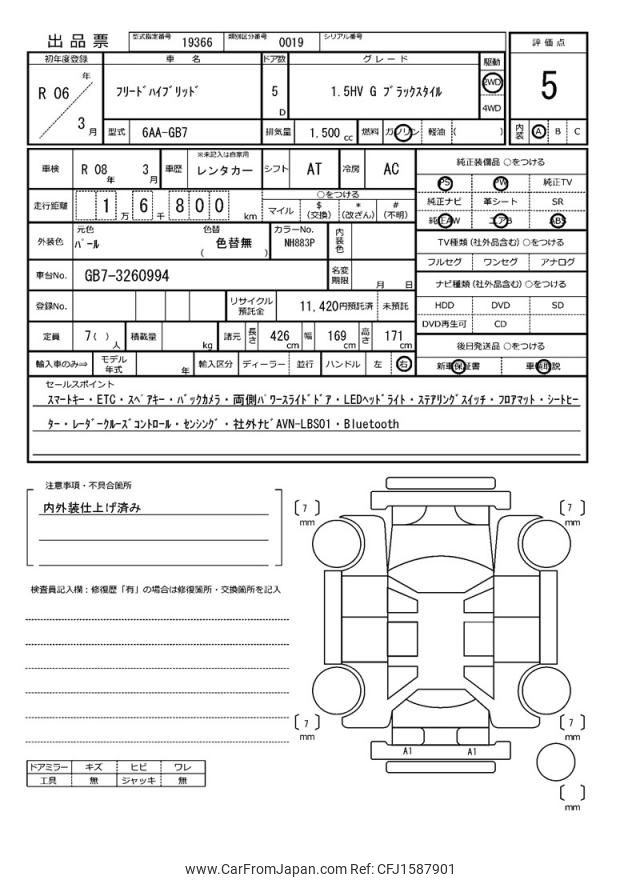 出品票 型式指定番号 19366 類別区分番号 0019 シリアル番号
初年度登録 車 名 ドア数 グレード 駆動 評価点
R 06 年 3 月 フリードハイブリッド 5 D 1.5HV G ブラックスタイル 2WD 4WD 5
型式 6AA-GB7 排気量 1.500 cc 燃料 ガソリン 軽油 ( ) 内装 A B C
車検 R 08 年 3 月 車歴 ※未記入は自家用 レンタカー シフト AT 冷房 AC
純正装備品 ○をつける
PS PW 純正TV
走行距離 1 万 6 千 8 0 0 km ○をつける
マイル $ (交換) * (改ざん) # (不明)
純正ナビ 革シート SR
純正AW エアB ABS
外装色 元色 パール 色替 ( 色替無 ) カラーNo. NH883P 内装色
TV種類 (社外品含む) ○をつける
フルセグ ワンセグ アナログ
車台No. GB7-3260994 名変期限 月 日
ナビ種類 (社外品含む) ○をつける
登録No. リサイクル預託金 11,420円預託済 未預託
HDD DVD SD
DVD再生可 CD
定員 7 ( ) 人 積載量 kg 諸元 長さ 426 cm 幅 169 cm 高さ 171 cm
後日発送品 ○をつける
輸入車のみ⇒ モデル年式 年 輸入区分 ディーラー ・ 並行 ハンドル 左 右
新車保証書 車輌取説
セールスポイント
スマートキー・ETC・スペアキー・バックカメラ・両側パワースライドドア・LEDヘッドライト・ステアリングスイッチ・フロアマット・シートヒー
ター・レーダークルーズコントロール・センシング・社外ナビAVN-LBS01・Bluetooth
注意事項・不具合箇所
内外装仕上げ済み
検査員記入欄：修復歴「有」の場合は修復箇所・交換箇所を記入
ドアミラー キズ ヒビ ワレ
工具 無 ジャッキ 無
7 mm
7 mm
7 mm
7 mm
A1 A1
mm
www.CarFromJapan.com Ref: CFJ1587901